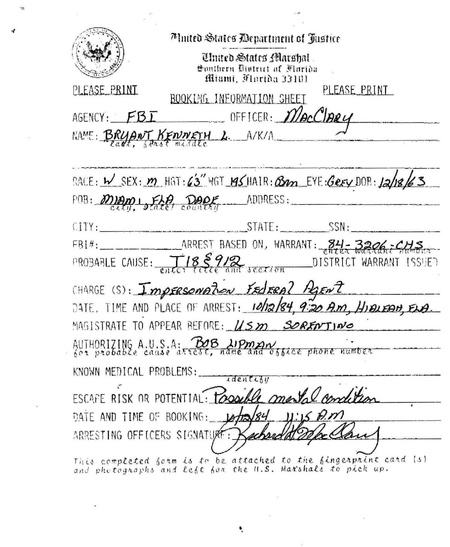 United States Department of Justice
United States Marshal
Southern District of Florida
Miami, Florida 33101
PLEASE PRINT PLEASE PRINT
BOOKING INFORMATION SHEET
AGENCY: FBI OFFICER: MacClary
NAME: BRYANT KENNETH L. A/K/A
last, first middle
RACE: W SEX: M HGT: 6'3" WGT 195 HAIR: BRN EYE: GREY DOB: 12/18/63
POB: MIAMI, FLA, DADE ADDRESS:
city, state, country
CITY: STATE: SSN:
FBI#: ARREST BASED ON, WARRANT: 84-3206-CHS
enter warrant number
PROBABLE CAUSE: T18 § 912 DISTRICT WARRANT ISSUED
enter title and section
CHARGE (S): Impersonation Federal Agent
DATE, TIME AND PLACE OF ARREST: 10/12/84, 9:20 AM, HIALEAH, FLA.
MAGISTRATE TO APPEAR BEFORE: USM SORENTINO
AUTHORIZING A.U.S.A: BOB LIPMAN
for probable cause arrest, name and office phone number
KNOWN MEDICAL PROBLEMS:
identify
ESCAPE RISK OR POTENTIAL: Possible mental condition
DATE AND TIME OF BOOKING: 10/12/84 11:15 AM
ARRESTING OFFICERS SIGNATURE: Richard H. MacClary
This completed form is to be attached to the fingerprint card (s)
and photographs and left for the U.S. Marshals to pick up.